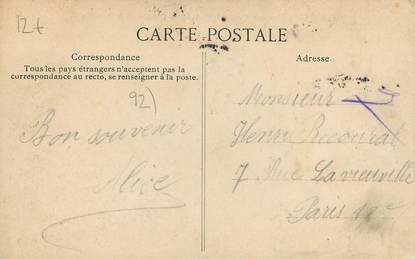 12t
CARTE POSTALE
Correspondance
Tous les pays étrangers n'acceptent pas la
correspondance au recto, se renseigner à la poste.
92)
Bon souvenir
Alice
Adresse
Monsieur
Henri
7 Rue Lavieuville
Paris